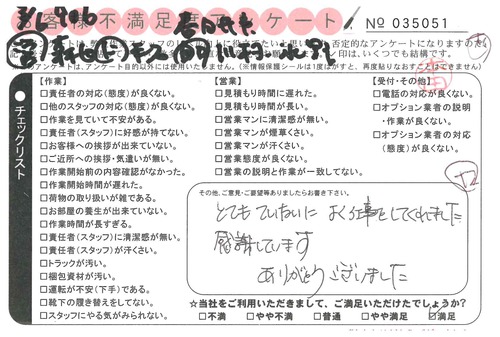 お客様不満足度アンケート
No 035051
は、いくつでも結構です。
ます。アンケート目的以外には使用いたしません。(※情報保護シールは1度がすと、再度貼りなおすことはできません)
チェックリスト
【作業】
□責任者の対応(態度)が良くない。
□他のスタッフの対応(態度)が良くない。
□作業を見ていて不安がある。
□責任者(スタッフ)に好感が持てない。
□お客様への挨拶が出来ていない。
□ご近所への挨拶・気遣いが無い。
□作業開始前の内容確認がなかった。
□作業開始時間が遅れた。
□荷物の取り扱いが雑である。
□お部屋の養生が出来ていない。
□作業時間が長すぎる。
□責任者(スタッフ)に清潔感が無い。
□責任者(スタッフ)が汗くさい。
□トラックが汚い。
□梱包資材が汚い。
□運転が不安(下手)である。
□靴下の履き替えをしてない。
□スタッフにやる気がみられない。
【営業】
□見積もり時間に遅れた。
□見積もり時間が長い。
□営業マンに清潔感が無い。
□営業マンが煙草くさい。
□営業マンが汗くさい。
□営業態度が良くない。
□営業の説明と作業が一致してない。
【受付・その他】
□電話の対応が良くない。
□オプション業者の説明
・作業が良くない。
□オプション業者の対応
(態度)が良くない。
その他、ご意見・ご要望等ありましたらお書き下さい。
とてもていねいに よく仕事をしてくれました
感謝しています
ありがとうございました
☆当社をご利用いただきまして、ご満足いただけたでしょうか?
□不満 □やや不満 □普通 □やや満足 □満足